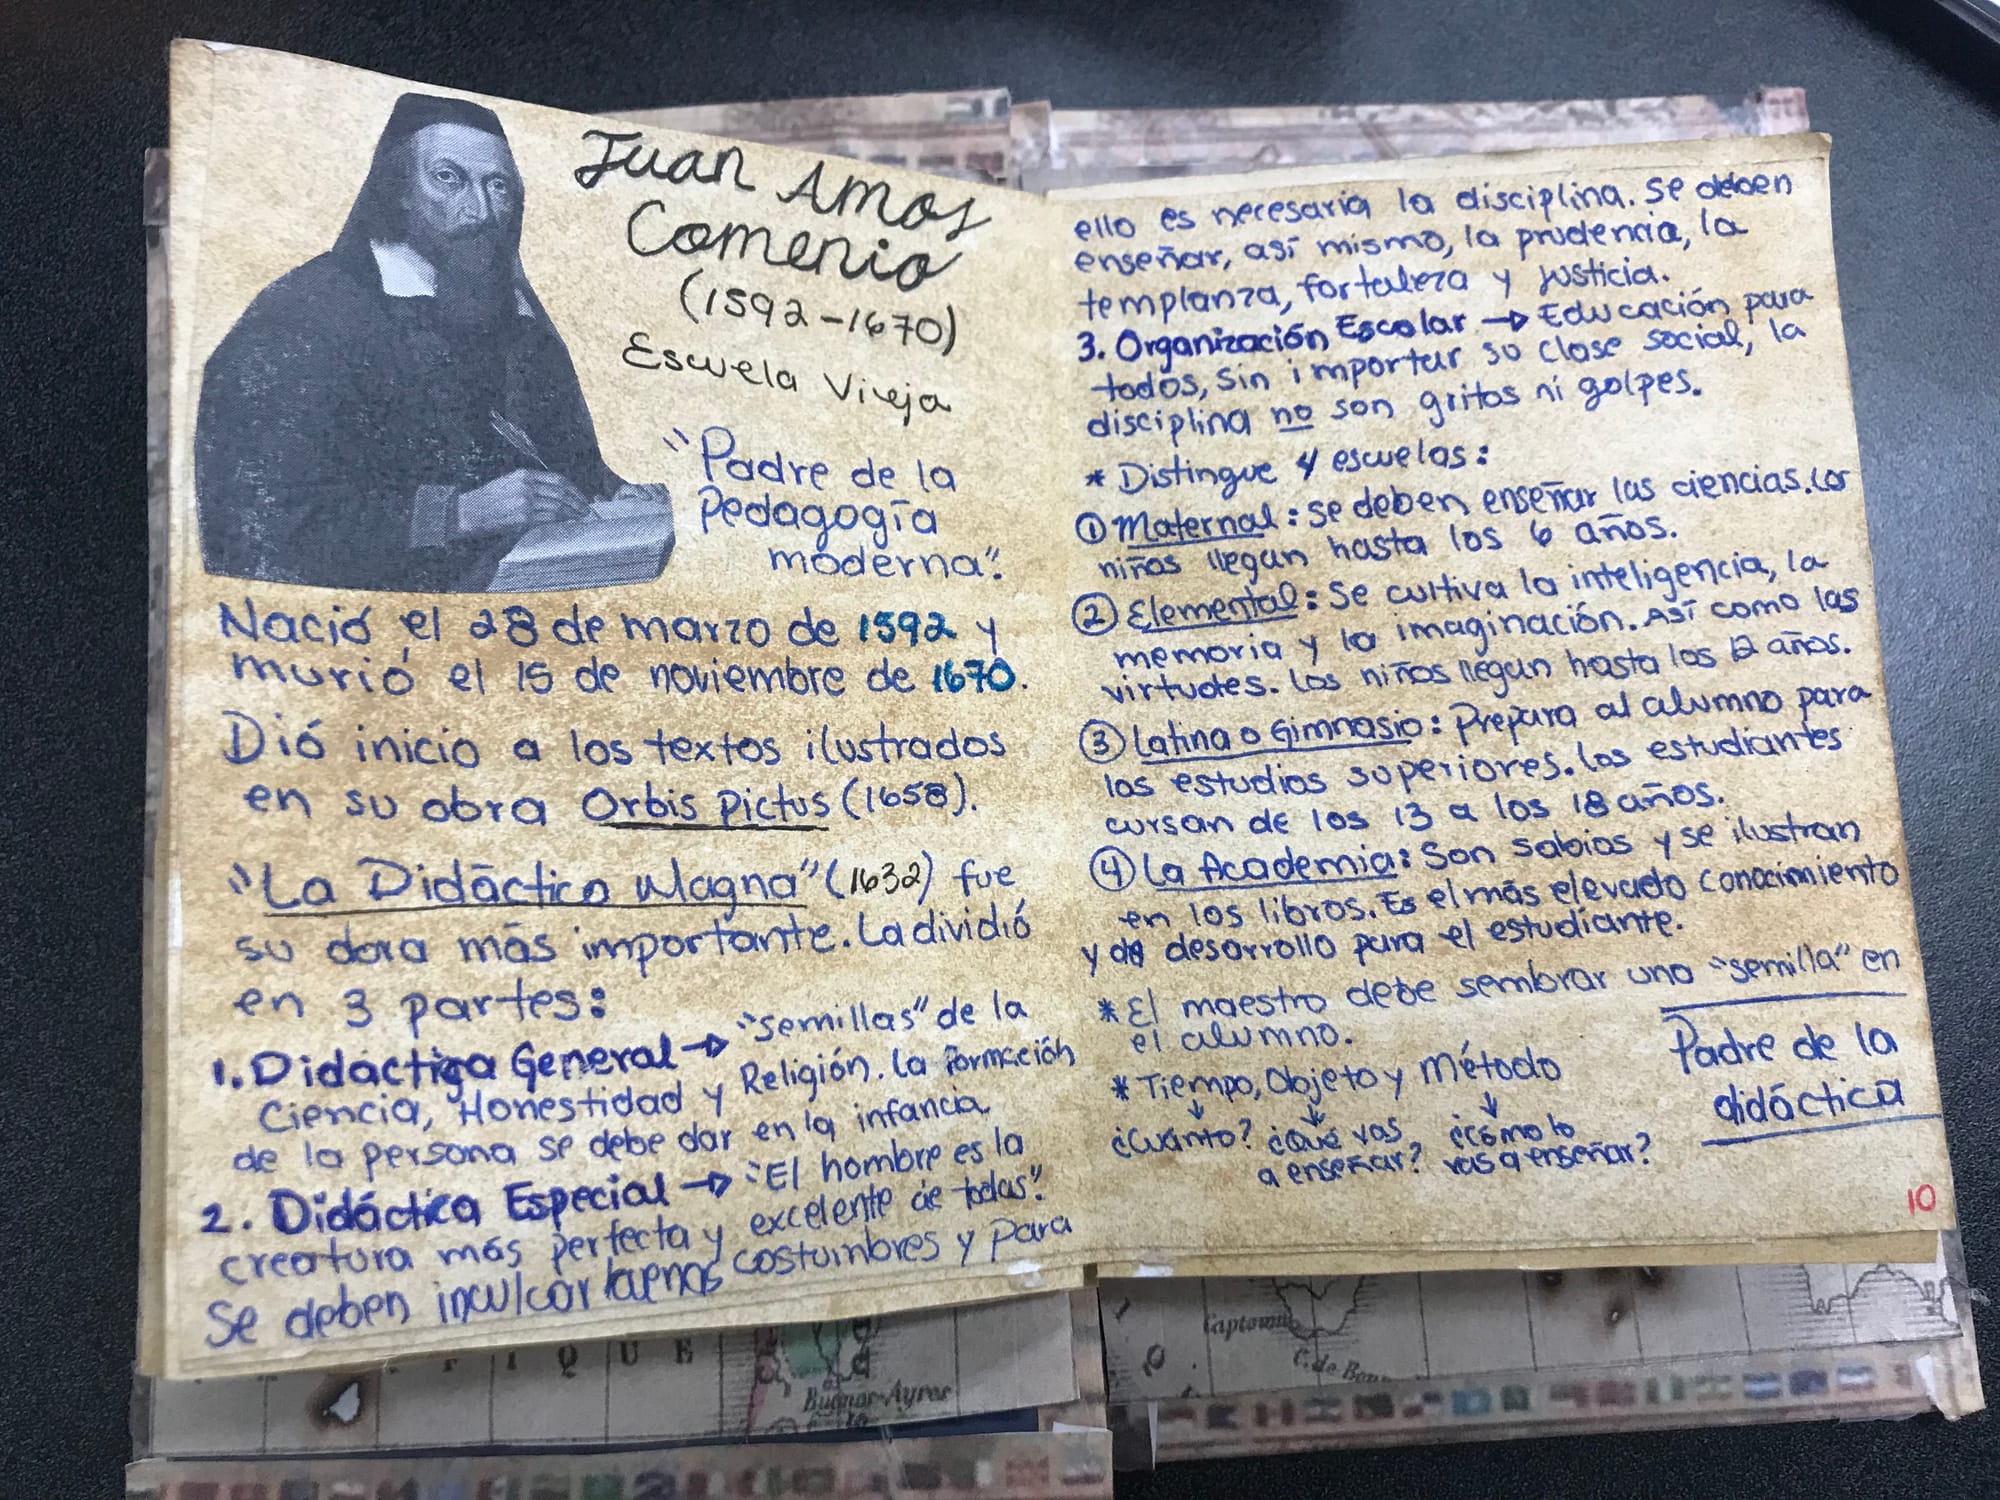 Juan Amos
Comenio
(1592-1670)
Escuela Vieja
"Padre de la
Pedagogía
moderna".
Nació el 28 de marzo de 1592 y
murió el 15 de noviembre de 1670.
Dió inicio a los textos ilustrados
en su obra Orbis Pictus (1658).
"La Didáctica Magna" (1632) fue
su obra más importante. La dividió
en 3 partes:
1. Didáctica General → "semillas" de la
Ciencia, Honestidad y Religión. La formación
de la persona se debe dar en la infancia
2. Didáctica Especial → "El hombre es la
creatura más perfecta y excelente de todas".
Se deben inculcar buenas costumbres y para
ello es necesaria la disciplina. Se deben
enseñar, así mismo, la prudencia, la
templanza, fortaleza y justicia.
3. Organización Escolar → Educación para
todos, sin importar su clase social, la
disciplina no son gritos ni golpes.
* Distingue 4 escuelas:
① Maternal: se deben enseñar las ciencias. Los
niños llegan hasta los 6 años.
② Elemental: Se cultiva la inteligencia, la
memoria y la imaginación. Así como las
virtudes. Los niños llegan hasta los 12 años.
③ Latina o Gimnasio: Prepara al alumno para
los estudios superiores. Los estudiantes
cursan de los 13 a los 18 años.
④ La Academia: Son sabios y se ilustran
en los libros. Es el más elevado conocimiento
y de desarrollo para el estudiante.
* El maestro debe sembrar una "semilla" en
el alumno.
* Tiempo, Objeto y Método
↓ ↓ ↓
¿Cuánto? ¿Qué vas ¿cómo lo
a enseñar? vas a enseñar?
Padre de la
didáctica
10
Captown
C. de Bon
I Q U E
Buenos-Ayres